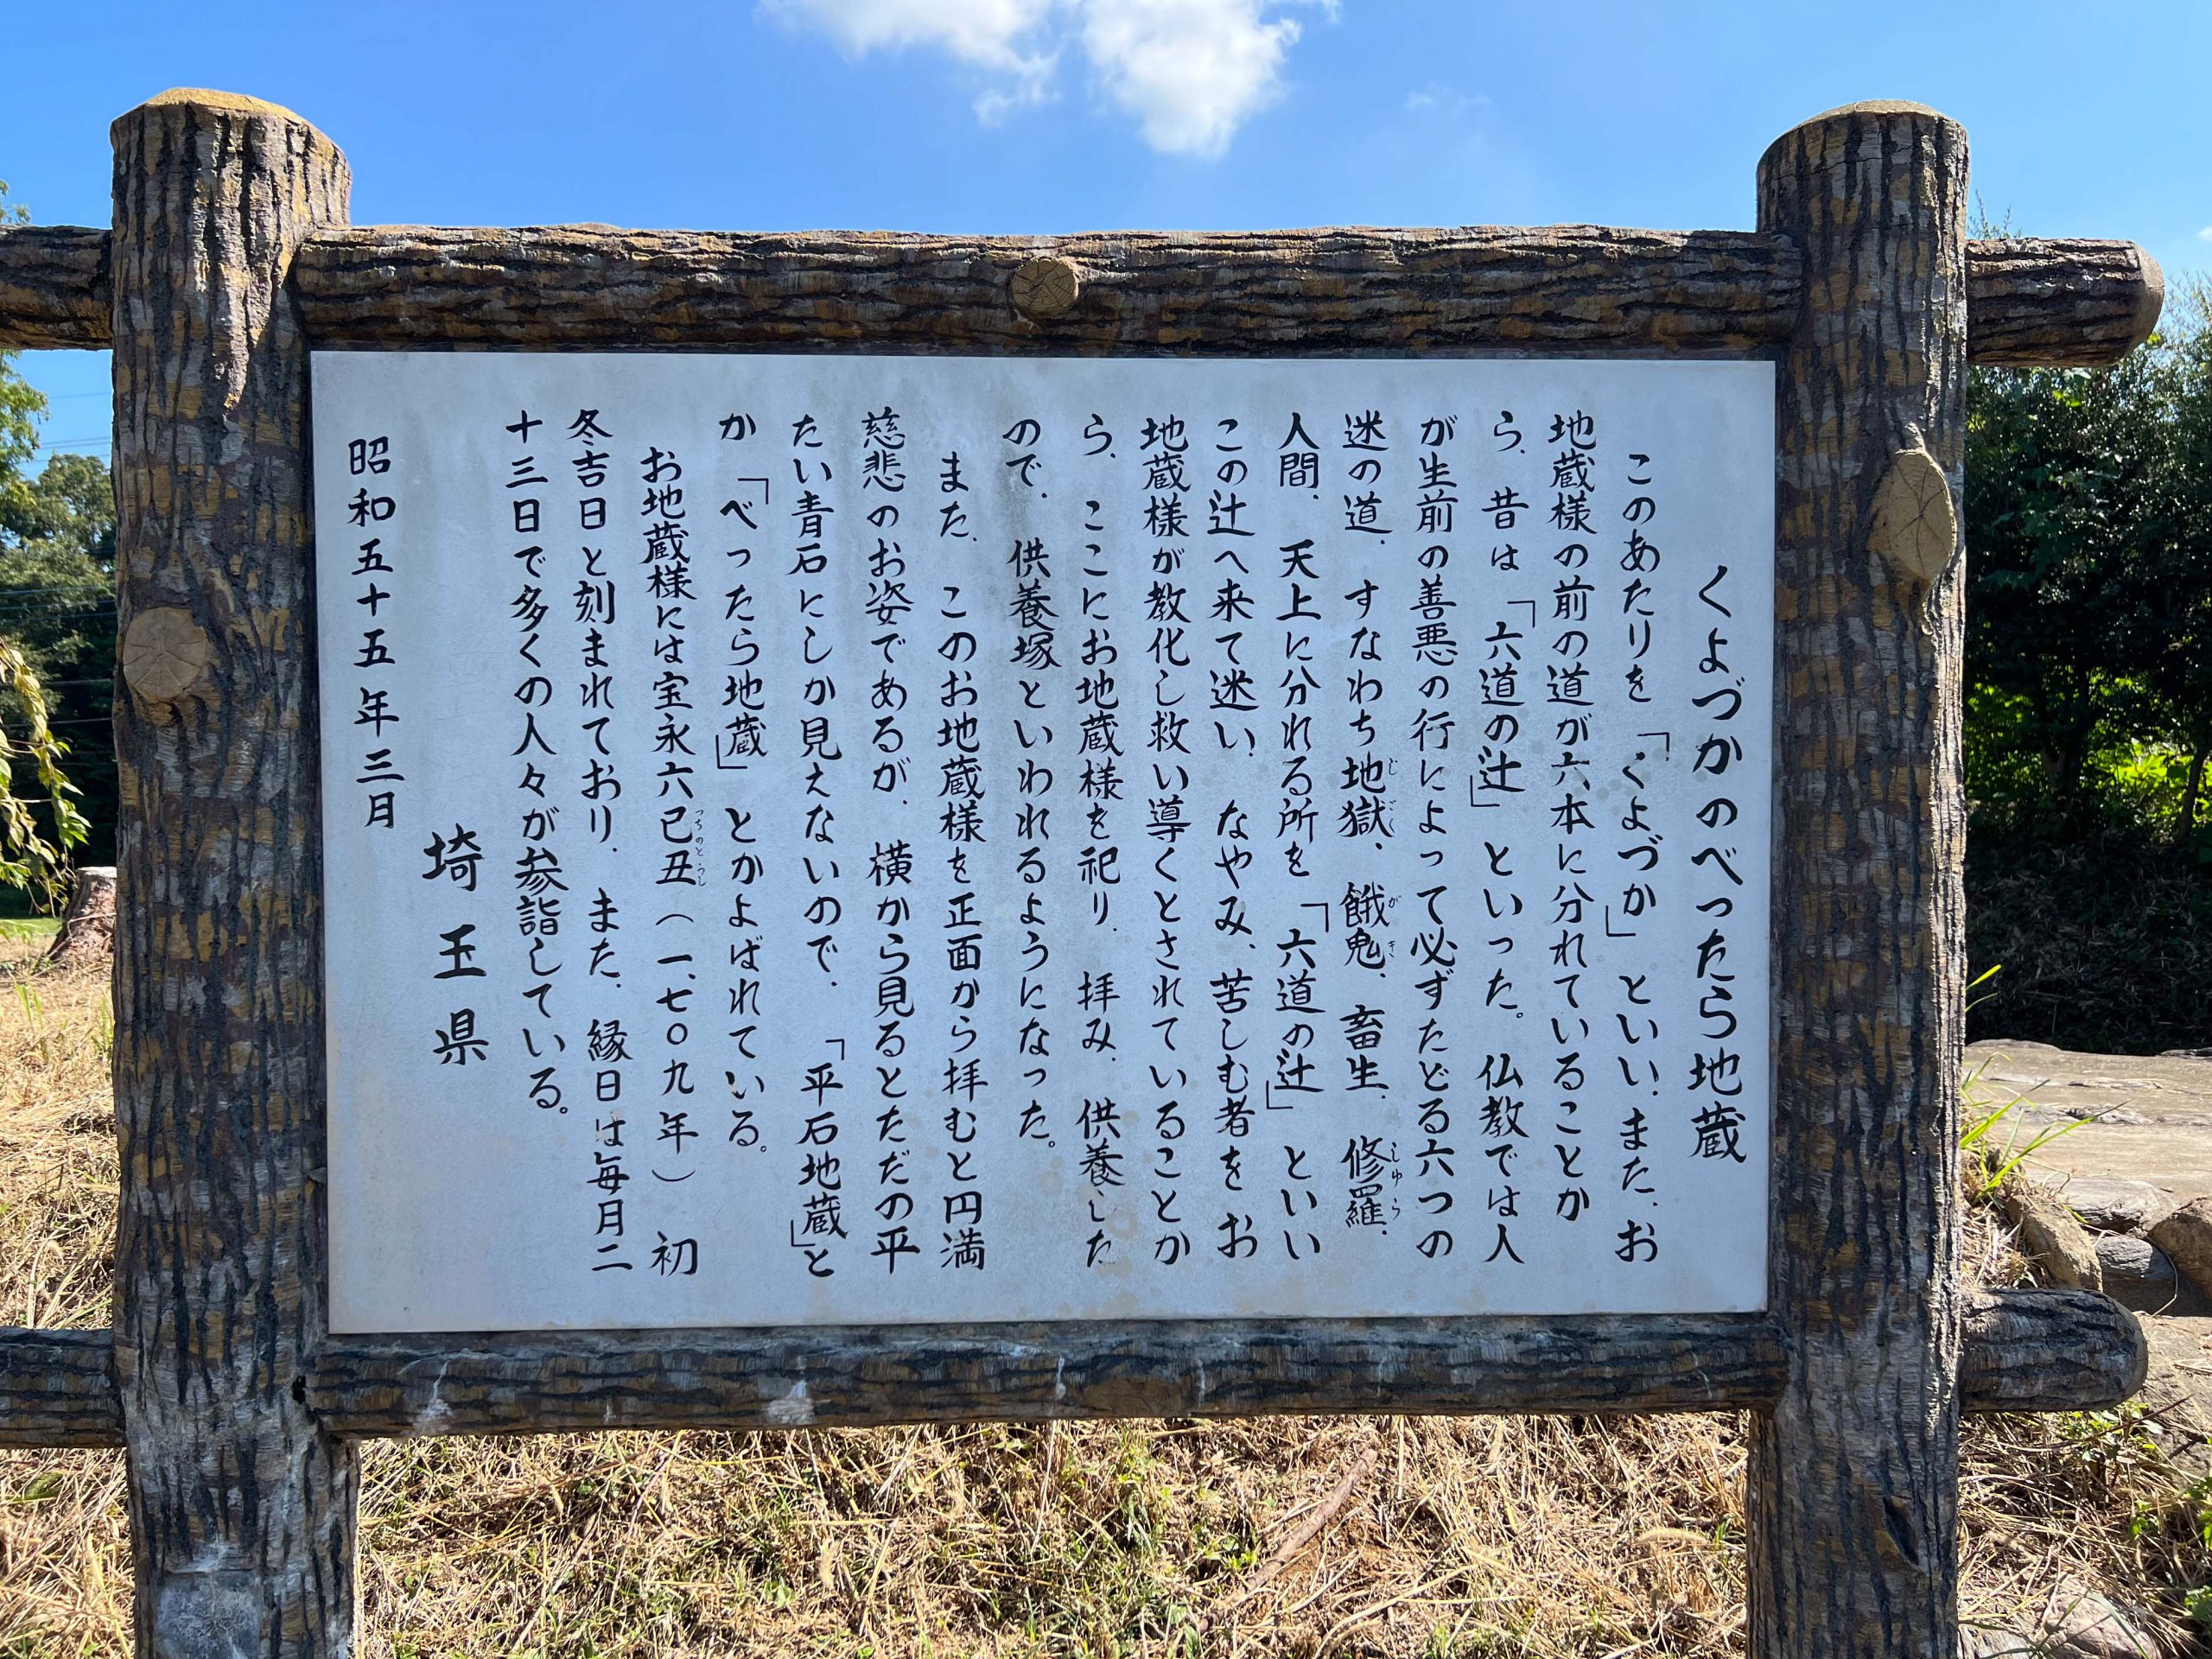 くよづかのべったら地蔵
このあたりを「くよづか」といい、また、お
地蔵様の前の道が六本に分れていることか
ら、昔は「六道の辻」といった。仏教では人
が生前の善悪の行によって必ずたどる六つの
迷の道、すなわち地獄、餓鬼、畜生、修羅、
じごく がき しゅら
人間、天上に分れる所を「六道の辻」といい
この辻へ来て迷い、なやみ、苦しむ者をお
地蔵様が教化し救い導くとされていることか
ら、ここにお地蔵様を祀り、拝み、供養した
ので、供養塚といわれるようになった。
また、このお地蔵様を正面から拝むと円満
慈悲のお姿であるが、横から見るとただの平
たい青石にしか見えないので、「平石地蔵」と
か「べったら地蔵」とかよばれている。
お地蔵様には宝永六己丑(一、七〇九年)初
つちのとうし
冬吉日と刻まれており、また、縁日は毎月二
十三日で多くの人々が参詣している。
埼玉県
昭和五十五年三月